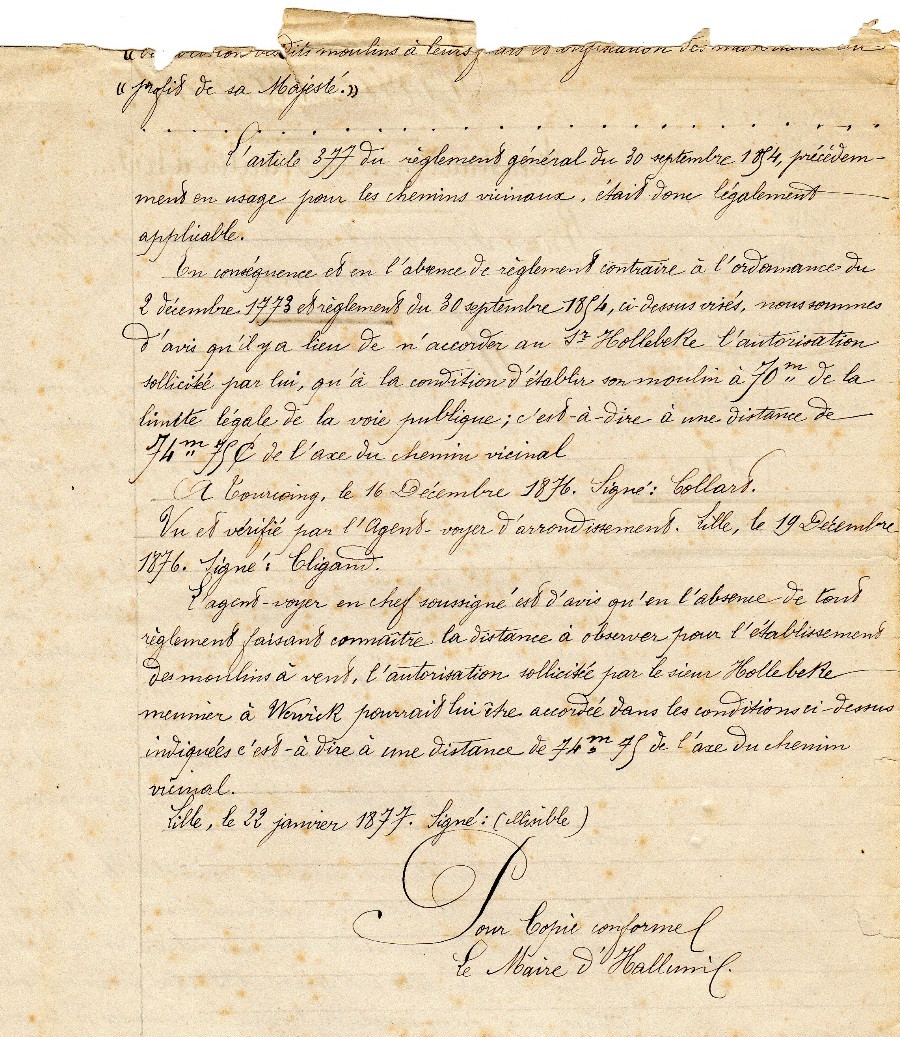 moulins à leurs
« profit de sa Majesté. »
. . . . . . . . . . . . . . . . . . . . . . . . . .
L'article 377 du règlement général du 30 septembre 1854, précédem-
ment en usage pour les chemins vicinaux, était donc légalement
applicable.
En conséquence et en l'absence de règlement contraire à l'ordonnance du
2 décembre 1773 et règlement du 30 septembre 1854, ci-dessus visés, nous sommes
d'avis qu'il y a lieu de n'accorder au Sr Hollebeke l'autorisation
sollicitée par lui, qu'à la condition d'établir son moulin à 70m de la
limite légale de la voie publique ; c'est-à-dire à une distance de
74m 75c de l'axe du chemin vicinal
A Tourcoing, le 16 Décembre 1876. Signé : Collart.
Vu et vérifié par l'Agent-voyer d'arrondissement. Lille, le 19 Décembre
1876. Signé : Cligand.
L'agent-voyer en chef soussigné est d'avis qu'en l'absence de tout
règlement faisant connaître la distance à observer pour l'établissement
des moulins à vent, l'autorisation sollicitée par le sieur Hollebeke
meunier à Werwick pourrait lui être accordée dans les conditions ci-dessus
indiquées c'est-à dire à une distance de 74m 75 de l'axe du chemin
vicinal.
Lille, le 22 janvier 1877. Signé : (illisible)
Pour Copie conforme
Le Maire d'Halluin